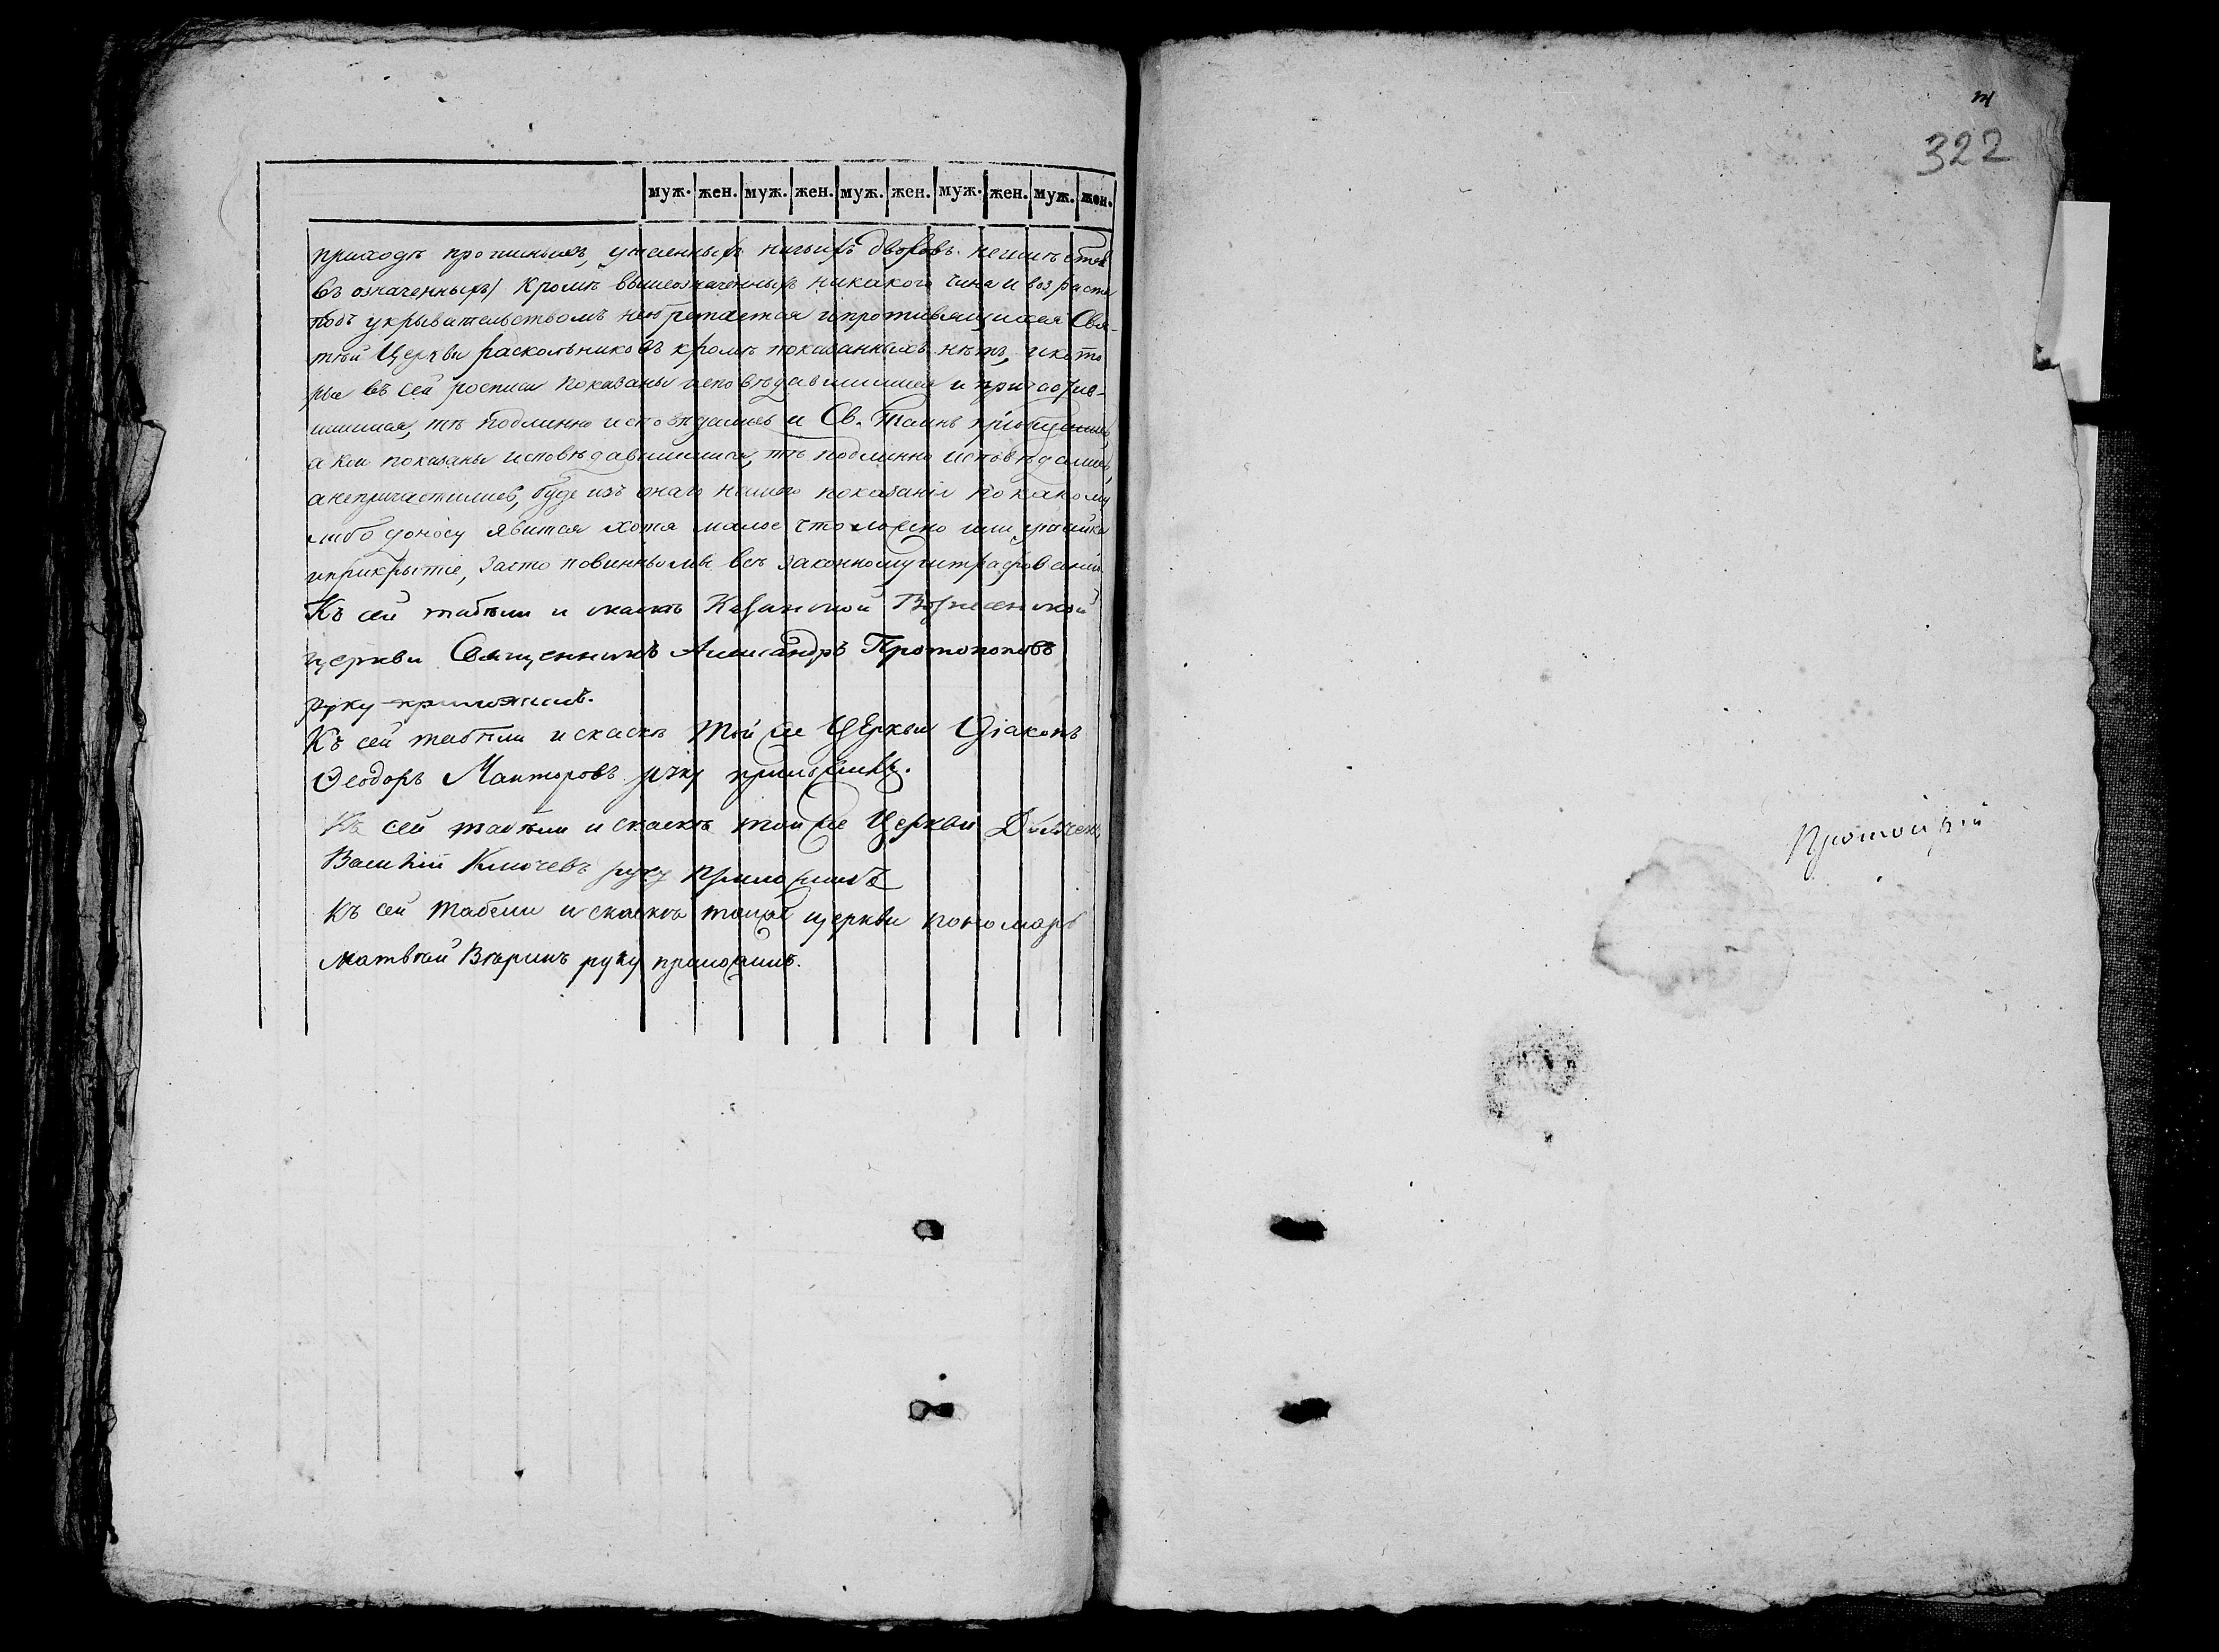 муж. жен. муж. жен. муж. жен. муж. жен. муж. жен.
приходѣ прописныхъ, утаенныхъ ничьихъ дворовъ
въ означенныхъ) кромѣ вышеозначенныхъ никакого чина и возраста
подъ укрывательствомъ необретается ипротивящихся Свя-
тѣй Церкви раскольниковъ кромѣ показанныхъ нѣтъ, икото
рые въ сей росписи показаны исповѣдавшимися и причастив-
шимися, тѣ подлинно исповѣдались и Св. Таинъ пріобщились,
а кои показаны исповѣдавшимися, тѣ подлинно исповѣдались,
анепричастились, буде изъ онаго нашего показанія по какому
либо доносу явится хотя малое что ложно или утайка
иприкрытіе, зато повинны мы всѣ законному штрафованію.
Къ сей табели и скаскѣ Казанской Вознесенской
церкви Священникъ Александръ Протопоповъ
руку приложилъ.
Къ сей табели искаскѣ той же Церкви Діаконъ
Ѳеодоръ руку приложилъ.
Къ сей табели и скаскѣ той же Церкви Дьячекъ
Василій Ключевъ руку приложилъ
Къ сей табели и скаскѣ тойже церкви пономарь
Матвѣй руку приложилъ.
322
Протоіерей